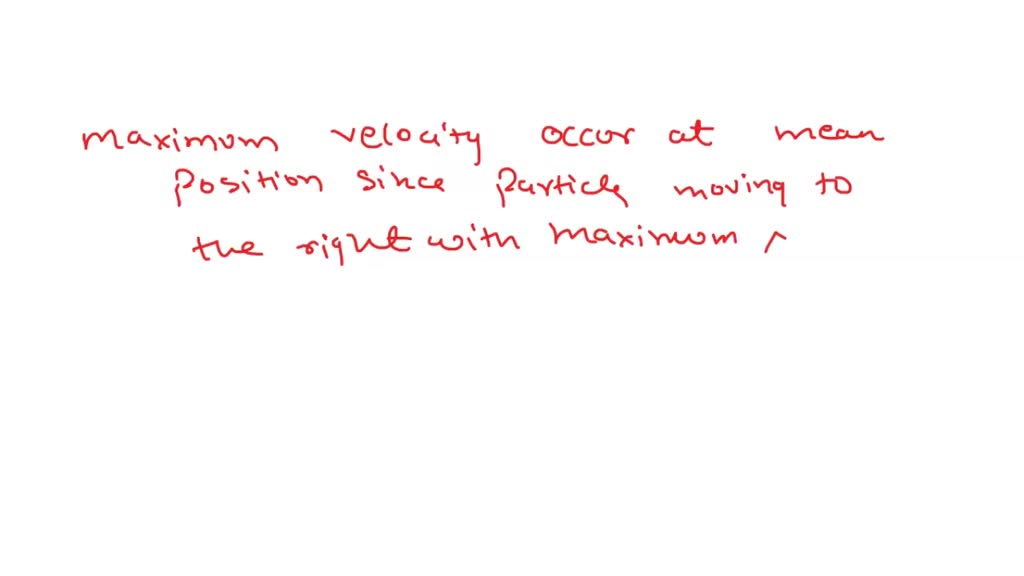 maximum velocity occur at mean
position since particle moving to
the right with maximum